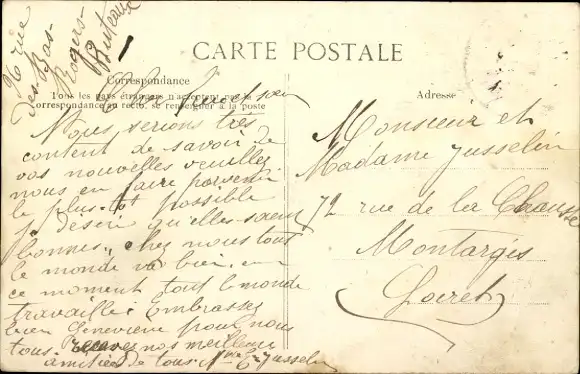 26 rue
des Bas-
Rogers
Puteaux
CARTE POSTALE
Correspondance
Tous les pays étrangers n'acceptent pas la
correspondance au recto, se renseigner à la poste
Adresse
Cher frère et sœur
Nous serions très
content de savoir de
vos nouvelles veuillez
nous en faire parvenir
le plus tôt possible
je désire qu'elles soeint
bonnes, chez nous tout
le monde va bien, en
ce moment tout le monde
travaille: Embrassez
bien Geneviève pour nous
tous recevez nos meilleurs
amitiés de tous Mme E. Jusselin
Monsieur et
Madame Jusselin
72 rue de la Chaussée
Montargis
(Loiret)